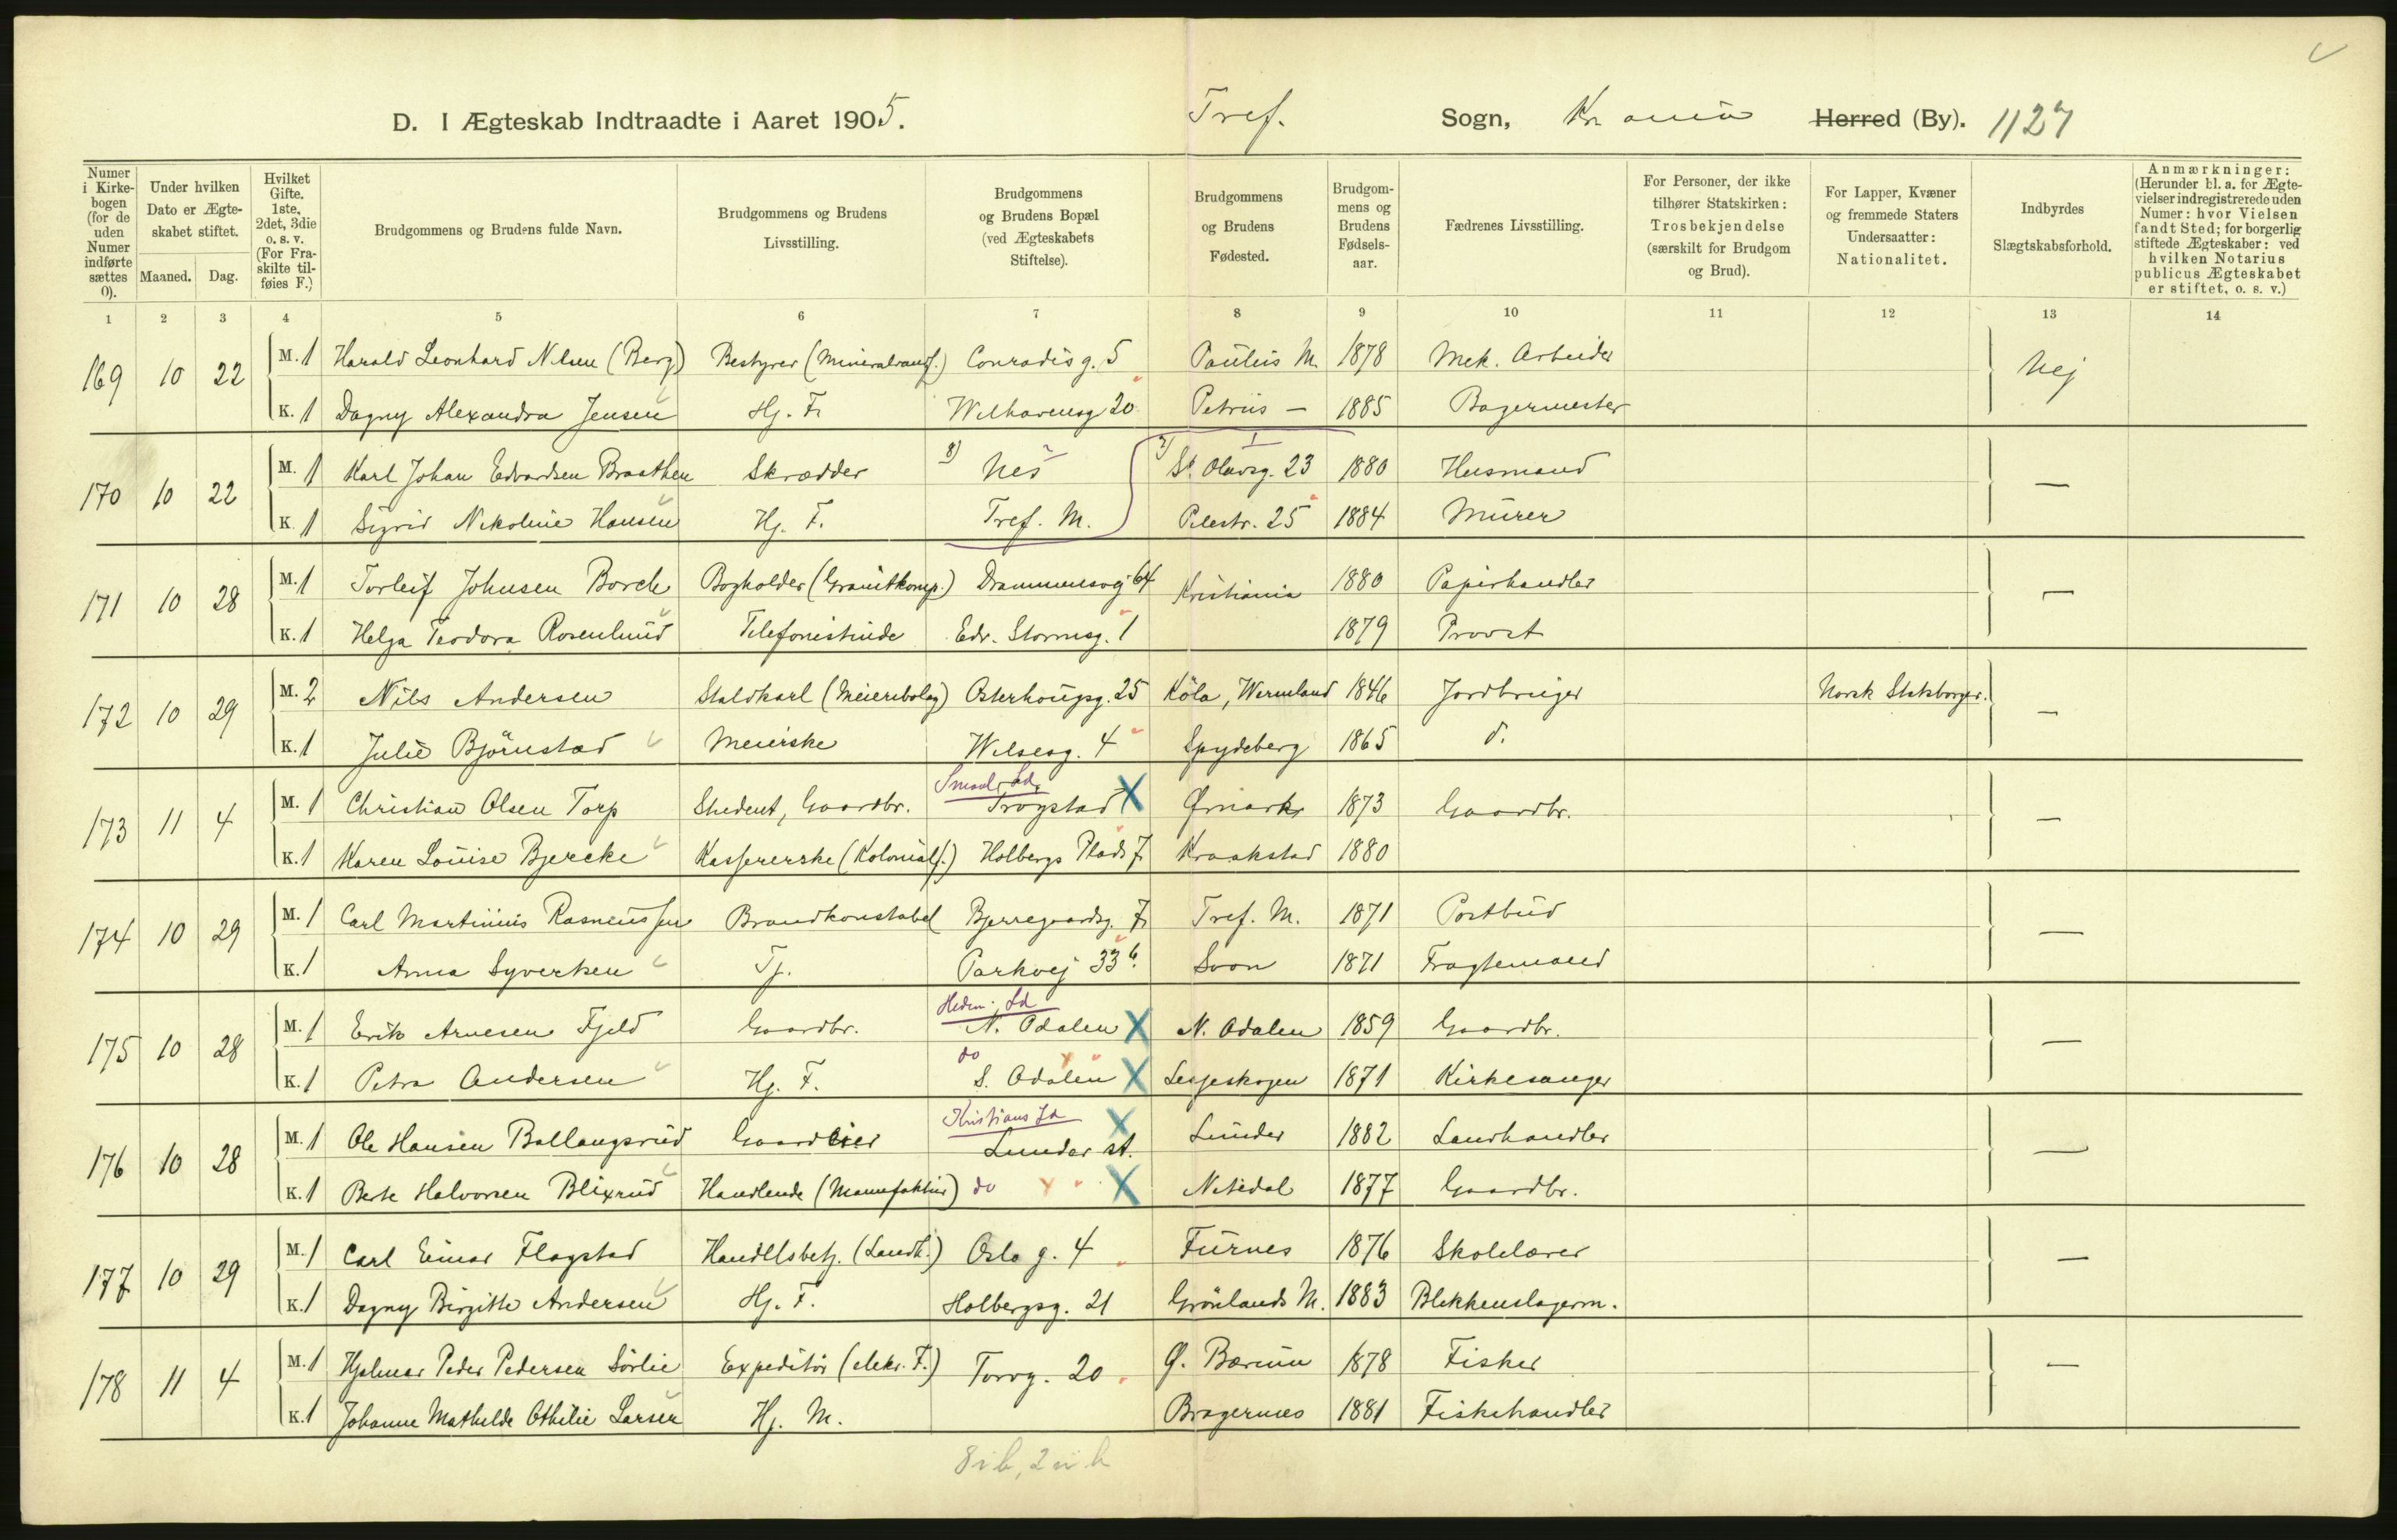 D. I Ægteskab Indtraadte i Aaret 1905. Tref. Sogn, Kr.ania Herred (By). 1127
Numer i Kirkebogen (for de uden Numer indførte sættes 0). Under hvilken Dato er Ægteskabet stiftet. Maaned. Dag. Hvilket Gifte. 1ste, 2det, 3die o. s. v. (For Fraskilte tilføies F.) Brudgommens og Brudens fulde Navn. Brudgommens og Brudens Livsstilling. Brudgommens og Brudens Bopæl (ved Ægteskabets Stiftelse). Brudgommens og Brudens Fødested. Brudgommens og Brudens Fødselsaar. Fædrenes Livsstilling. For Personer, der ikke tilhører Statskirken: Trosbekjendelse (særskilt for Brudgom og Brud). For Lapper, Kvæner og fremmede Staters Undersaatter: Nationalitet. Indbyrdes Slægtskabsforhold. Anmærkninger: (Herunder bl. a. for Ægtevielser indregistrerede uden Numer: hvor Vielsen fandt Sted; for borgerlig stiftede Ægteskaber: ved hvilken Notarius publicus Ægteskabet er stiftet, o. s. v.)
1 2 3 4 5 6 7 8 9 10 11 12 13 14
169 10 22 M. 1 Harald Leonhard Nilsen (Berg) Bestyrer (Mineralvandf.) Conradis g. 5 Paulus M. 1878 Mek. Arbeider Nej
K. 1 Dagny Alexandra Jensen Hj. F. Welhavensg 20 Petrus — 1885 Bagermester
170 10 22 M. 1 Karl Johan Edvardsen Braathen Skrædder Nes St. Olavsg. 23 1880 Husmand —
K. 1 Sigrid Nikoline Hansen Hj. F. Tref. M. Pilestr. 25 1884 Murer
171 10 28 M. 1 Torleif Johnsen Borch Bogholder (Granitkomp.) Drammensvej 64 Kristiania 1880 Papirhandler —
K. 1 Helga Teodora Rosenlund Telefonistinde Edv. Stormsg. 1 1879 Provst
172 10 29 M. 2 Nils Andersen Staldkarl (Meieribolag) Osterhougsg. 25 Köla, Wermland 1846 Jordbruger Norsk Statsborger. —
K. 1 Julie Bjørnstad Meierske Welsesg. 4 Spydeberg 1865 d.
173 11 4 M. 1 Christian Olsen Torp Student, Gaardbr. Smaal. Ld. Trøgstad X Ømark 1873 Gaardbr. —
K. 1 Karen Louise Bjercke Kassererske (Kolonialf.) Holbergs Plads 7 Kraakstad 1880
174 10 29 M. 1 Carl Martinius Rasmussen Brandkonstabel Bjerregaardsg. 7 Tref. M. 1871 Postbud —
K. 1 Anna Syvertsen Tj. Parkvej 33 b. Soon 1871 Fragtemand
175 10 28 M. 1 Erik Arnesen Fjeld Gaardbr. Hedm. Ld N. Odalen X N. Odalen 1859 Gaardbr. —
K. 1 Petra Andersen Hj. F. do S. Odalen X Lesjeskogen 1871 Kirkesanger
176 10 28 M. 1 Ole Hansen Ballangsrud Gaardeier Kristians Ld X Lunder st. Lunder 1882 Landhandler —
K. 1 Berte Halvorsen Blixrud Handlende (Manufaktur) do X Nitedal 1877 Gaardbr.
177 10 29 M. 1 Carl Einar Flagstad Handelsbetj. (Landh.) Oslo g. 4 Furnes 1876 Skolelærer —
K. 1 Dagny Birgitte Andersen Hj. F. Holbergsg. 21 Grønlands M. 1883 Blikkenslagerm.
178 11 4 M. 1 Hjalmar Peder Pedersen Sørlie Expeditør (elektr. F.) Torvg. 20 Ø. Bærum 1878 Fisker —
K. 1 Johanne Mathilde Othilie Larsen Hj. M. Bragernes 1881 Fiskehandler
8 i b, 2 u b